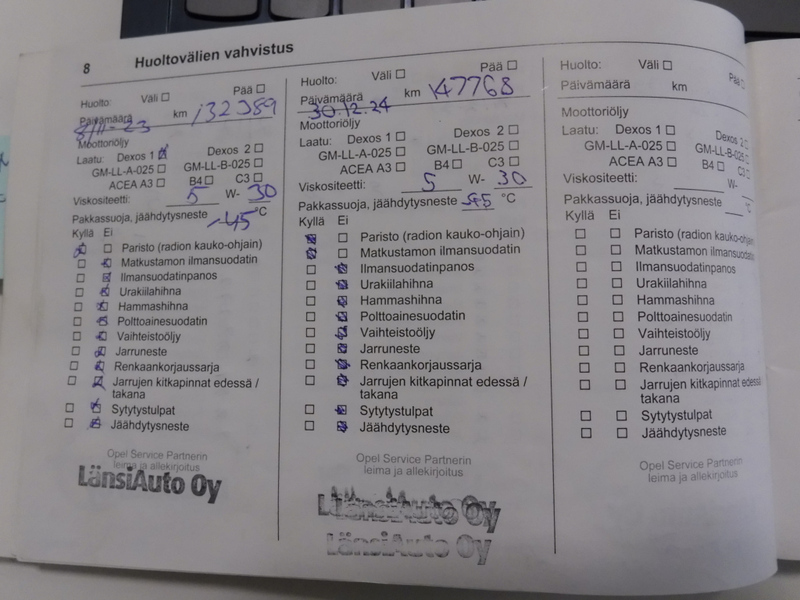 8 Huoltovälien vahvistus
Huolto: Väli ☐ Pää ☐
Päivämäärä km 132389
Moottoriöljy
Laatu: Dexos 1 ☒ Dexos 2 ☐
GM-LL-A-025 ☐ GM-LL-B-025 ☐
ACEA A3 ☐ B4 ☐ C3 ☐
Viskositeetti: 5 W- 30
Pakkassuoja, jäähdytysneste -45 °C
Kyllä Ei
☒ ☐ Paristo (radion kauko-ohjain)
☐ ☒ Matkustamon ilmansuodatin
☐ ☒ Ilmansuodatinpanos
☐ ☒ Urakiilahihna
☐ ☒ Hammashihna
☐ ☒ Polttoainesuodatin
☐ ☒ Vaihteistoöljy
☐ ☒ Jarruneste
☐ ☒ Renkaankorjaussarja
☐ ☒ Jarrujen kitkapinnat edessä /
takana
☐ ☒ Sytytystulpat
☐ ☒ Jäähdytysneste
Opel Service Partnerin
leima ja allekirjoitus
LänsiAuto Oy
Huolto: Väli ☐ Pää ☐
Päivämäärä km 147768
30.12.24
Moottoriöljy
Laatu: Dexos 1 ☐ Dexos 2 ☐
GM-LL-A-025 ☐ GM-LL-B-025 ☐
ACEA A3 ☐ B4 ☐ C3 ☐
Viskositeetti: 5 W- 30
Pakkassuoja, jäähdytysneste °C
Kyllä Ei
☒ ☐ Paristo (radion kauko-ohjain)
☒ ☐ Matkustamon ilmansuodatin
☐ ☒ Ilmansuodatinpanos
☐ ☒ Urakiilahihna
☐ ☒ Hammashihna
☐ ☒ Polttoainesuodatin
☐ ☒ Vaihteistoöljy
☐ ☒ Jarruneste
☐ ☒ Renkaankorjaussarja
☐ ☒ Jarrujen kitkapinnat edessä /
takana
☐ ☒ Sytytystulpat
☐ ☒ Jäähdytysneste
Opel Service Partnerin
leima ja allekirjoitus
LänsiAuto Oy
LänsiAuto Oy
Huolto: Väli ☐ Pää ☐
Päivämäärä km
Moottoriöljy
Laatu: Dexos 1 ☐ Dexos 2 ☐
GM-LL-A-025 ☐ GM-LL-B-025 ☐
ACEA A3 ☐ B4 ☐ C3 ☐
Viskositeetti: W-
Pakkassuoja, jäähdytysneste °C
Kyllä Ei
☐ ☐ Paristo (radion kauko-ohjain)
☐ ☐ Matkustamon ilmansuodatin
☐ ☐ Ilmansuodatinpanos
☐ ☐ Urakiilahihna
☐ ☐ Hammashihna
☐ ☐ Polttoainesuodatin
☐ ☐ Vaihteistoöljy
☐ ☐ Jarruneste
☐ ☐ Renkaankorjaussarja
☐ ☐ Jarrujen kitkapinnat edessä /
takana
☐ ☐ Sytytystulpat
☐ ☐ Jäähdytysneste
Opel Service Partnerin
leima ja allekirjoitus